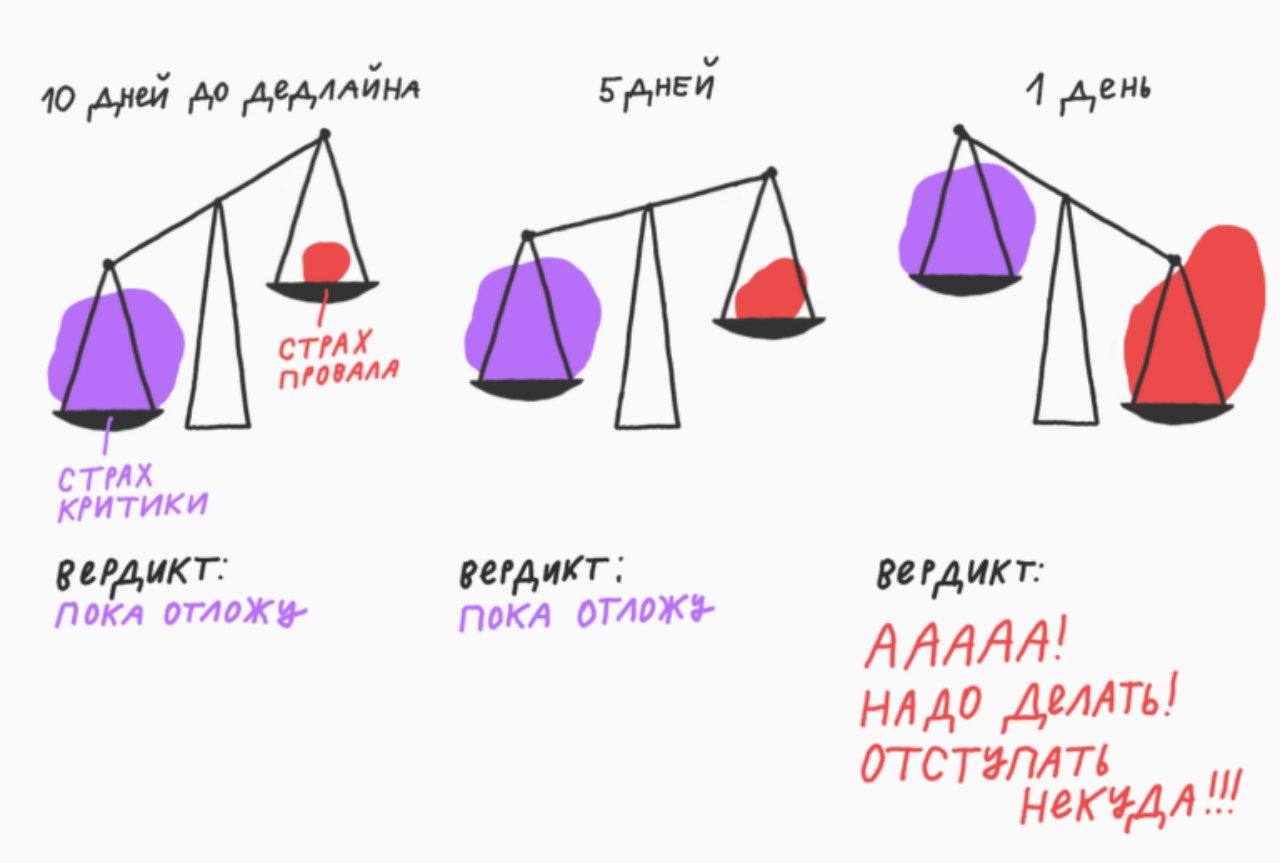 10 дней до дедлайна
5 дней
1 день
страх
провала
страх
критики
вердикт:
пока отложу
вердикт:
пока отложу
вердикт:
ААААА!
надо делать!
отступать
некуда!!!